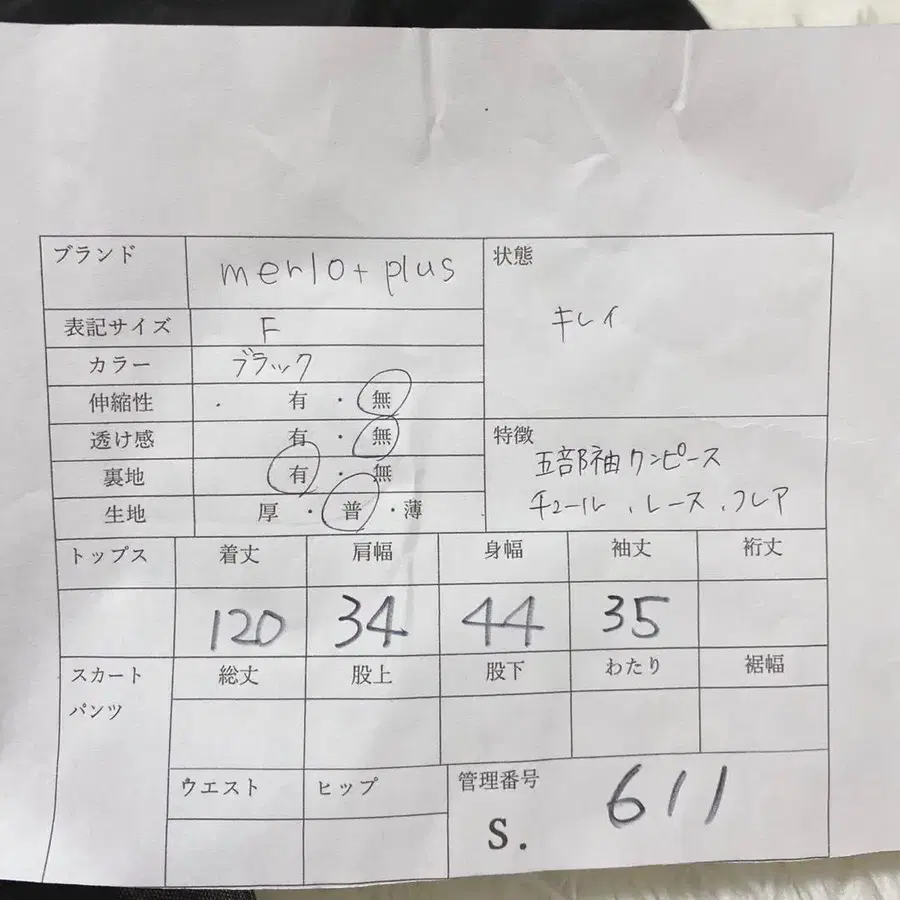 ブランド merlot plus 状態
キレイ
表記サイズ F
カラー ブラック
伸縮性 有 ・ 無
透け感 有 ・ 無
特徴
五部袖ワンピース
チュール、レース、フレア
裏地 有 ・ 無
生地 厚 ・ 普 ・ 薄
トップス 着丈 肩幅 身幅 袖丈 裄丈
120 34 44 35
スカート 総丈 股上 股下 わたり 裾幅
パンツ
ウエスト ヒップ 管理番号
S. 611